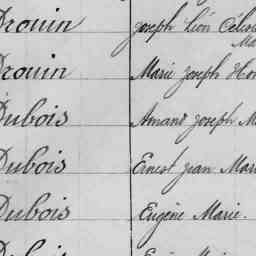 Drouin Joseph Léon
Ma
Drouin Marie Joseph
Dubois Amand Joseph
Dubois Ernest Jean Mari
Dubois Eugène Marie.